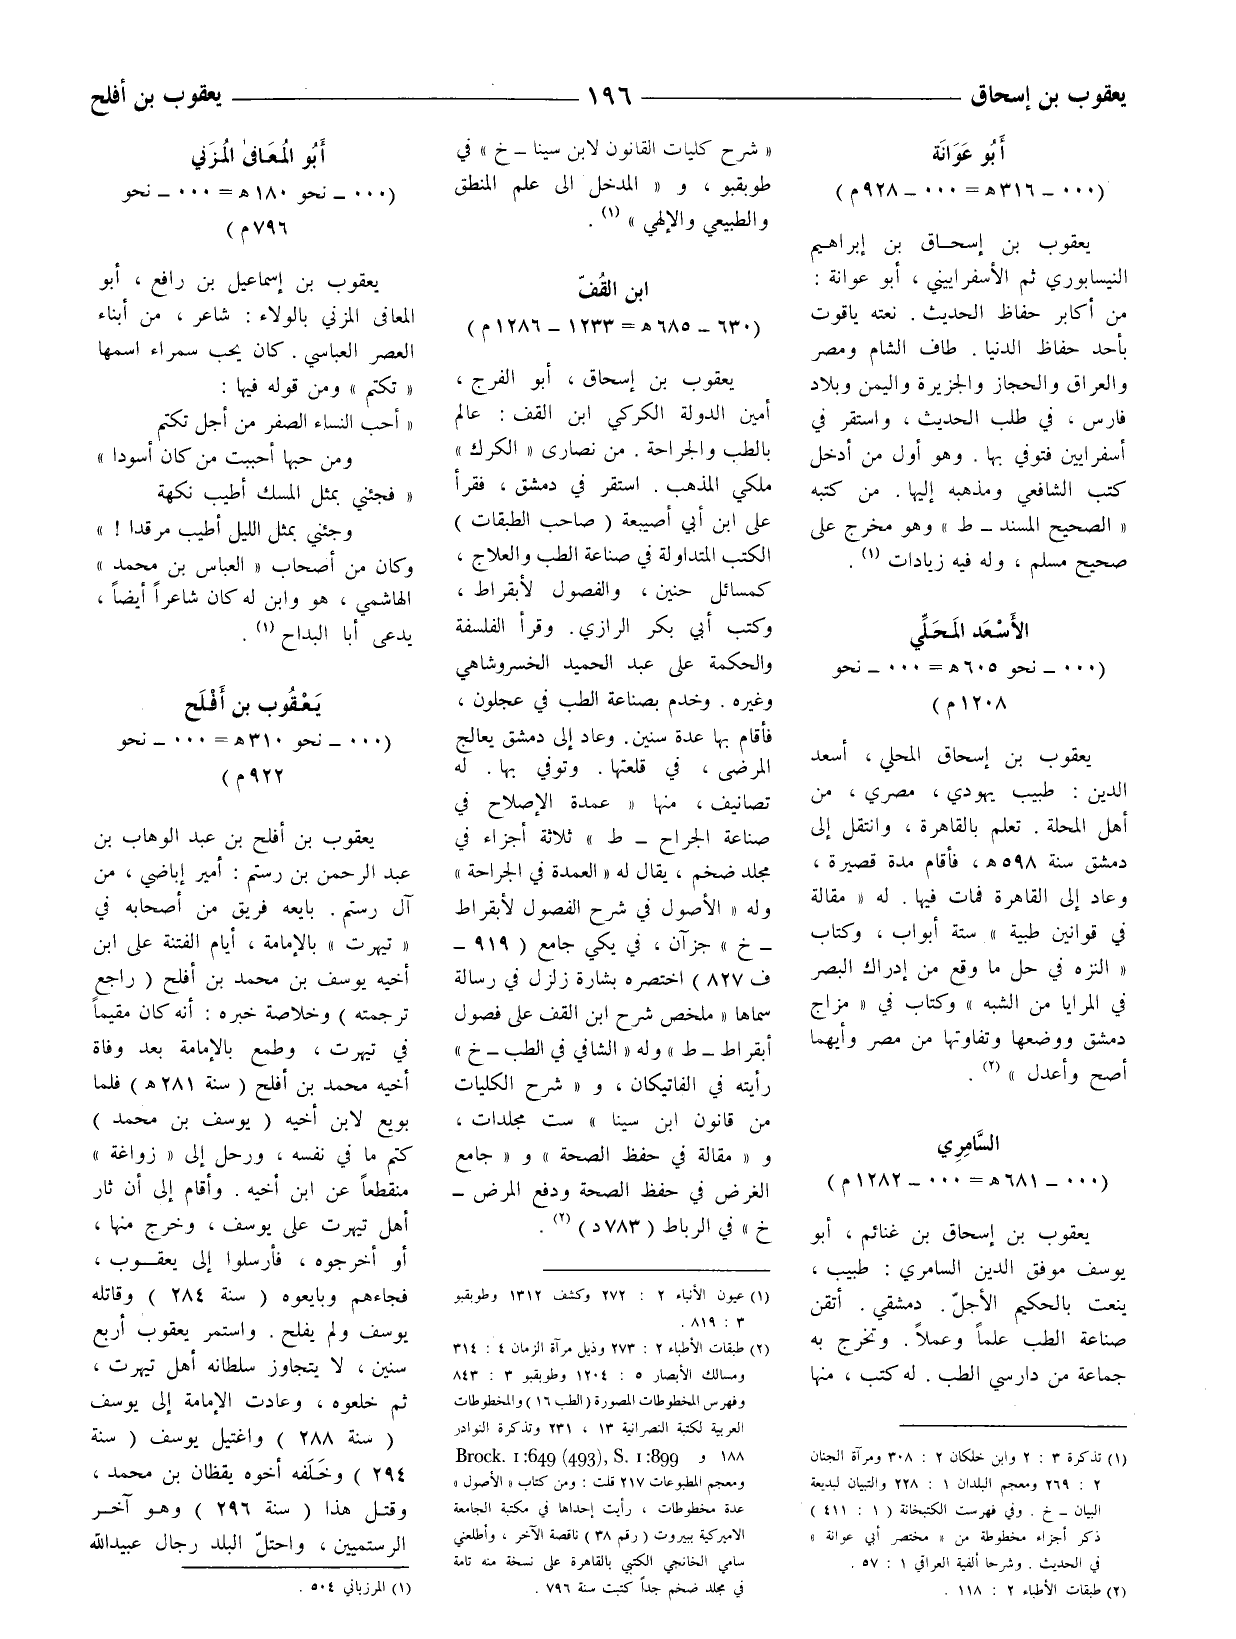 يعقوب بن إسحاق ١٩٦ يعقوب بن أفلح
أَبُو عَوَانَة
(٠٠٠ ــ ٣١٦ هـ = ٠٠٠ ــ ٩٢٨ م)
يعقوب بن إسحـاق بن إبراهيم
النيسابوري ثم الأسفراييني ، أبو عوانة :
من أكابر حفاظ الحديث . نعته ياقوت
بأحد حفاظ الدنيا . طاف الشام ومصر
والعراق والحجاز والجزيرة واليمن وبلاد
فارس ، في طلب الحديث ، واستقر في
أسفرايين فتوفي بها . وهو أول من أدخل
كتب الشافعي ومذهبه إليها . من كتبه
« الصحيح المسند ــ ط » وهو مخرج على
صحيح مسلم ، وله فيه زيادات (١) .
الأَسْعَد المَحَلِّي
(٠٠٠ ــ نحو ٦٠٥ هـ = ٠٠٠ ــ نحو
١٢٠٨ م)
يعقوب بن إسحاق المحلي ، أسعد
الدين : طبيب يهودي ، مصري ، من
أهل المحلة . تعلم بالقاهرة ، وانتقل إلى
دمشق سنة ٥٩٨ هـ ، فأقام مدة قصيرة ،
وعاد إلى القاهرة فمات فيها . له « مقالة
في قوانين طبية » ستة أبواب ، وكتاب
« النزه في حل ما وقع من إدراك البصر
في المرايا من الشبه » وكتاب في « مزاج
دمشق ووضعها وتفاوتها من مصر وأيهما
أصح وأعدل » (٢) .
السَّامِري
(٠٠٠ ــ ٦٨١ هـ = ٠٠٠ ــ ١٢٨٢ م)
يعقوب بن إسحاق بن غنائم ، أبو
يوسف موفق الدين السامري : طبيب ،
ينعت بالحكيم الأجلّ . دمشقي . أتقن
صناعة الطب علماً وعملاً . وتخرج به
جماعة من دارسي الطب . له كتب ، منها
(١) تذكرة ٣ : ٢ وابن خلكان ٢ : ٣٠٨ ومرآة الجنان
٢ : ٢٦٩ ومعجم البلدان ١ : ٢٢٨ والتبيان لبديعة
البيان ــ خ . وفي فهرست الكتبخانة ( ١ : ٤١١ )
ذكر أجزاء مخطوطة من « مختصر أبي عوانة »
في الحديث . وشرحا ألفية العراقي ١ : ٥٧ .
(٢) طبقات الأطباء ٢ : ١١٨ .
« شرح كليات القانون لابن سينا ــ خ » في
طوبقبو ، و « المدخل الى علم المنطق
والطبيعي والإلهي » (١) .
ابن القُفّ
(٦٣٠ ــ ٦٨٥ هـ = ١٢٣٣ ــ ١٢٨٦ م)
يعقوب بن إسحاق ، أبو الفرج ،
أمين الدولة الكركي ابن القف : عالم
بالطب والجراحة . من نصارى « الكرك »
ملكي المذهب . استقر في دمشق ، فقرأ
على ابن أبي أصيبعة ( صاحب الطبقات )
الكتب المتداولة في صناعة الطب والعلاج ،
كمسائل حنين ، والفصول لأبقراط ،
وكتب أبي بكر الرازي . وقرأ الفلسفة
والحكمة على عبد الحميد الخسروشاهي
وغيره . وخدم بصناعة الطب في عجلون ،
فأقام بها عدة سنين . وعاد إلى دمشق يعالج
المرضى ، في قلعتها . وتوفي بها . له
تصانيف ، منها « عمدة الإصلاح في
صناعة الجراح ــ ط » ثلاثة أجزاء في
مجلد ضخم ، يقال له « العمدة في الجراحة »
وله « الأصول في شرح الفصول لأبقراط
ــ خ » جزآن ، في يكي جامع ( ٩١٩ ــ
ف ٨٢٧ ) اختصره بشارة زلزل في رسالة
سماها « ملخص شرح ابن القف على فصول
أبقراط ــ ط » وله « الشافي في الطب ــ خ »
رأيته في الفاتيكان ، و « شرح الكليات
من قانون ابن سينا » ست مجلدات ،
و « مقالة في حفظ الصحة » و « جامع
الغرض في حفظ الصحة ودفع المرض ــ
خ » في الرباط ( ٧٨٣ د ) (٢) .
(١) عيون الأنباء ٢ : ٢٧٢ وكشف ١٣١٢ وطوبقبو
٣ : ٨١٩ .
(٢) طبقات الأطباء ٢ : ٢٧٣ وذيل مرآة الزمان ٤ : ٣١٤
ومسالك الأبصار ٥ : ١٢٠٤ وطوبقبو ٣ : ٨٤٣
وفهرس المخطوطات المصورة ( الطب ١٦ ) والمخطوطات
العربية لكتبة النصرانية ١٣ ، ٢٣١ وتذكرة النوادر
١٨٨ و Brock. 1:649 (493), S. 1:899
ومعجم المطبوعات ٢١٧ قلت : ومن كتاب « الأصول »
عدة مخطوطات ، رأيت إحداها في مكتبة الجامعة
الاميركية ببيروت ( رقم ٣٨ ) ناقصة الآخر ، وأطلعني
سامي الخانجي الكتبي بالقاهرة على نسخة منه تامة
في مجلد ضخم جداً كتبت سنة ٧٩٦ .
أَبُو المُعَافىٰ المُزَني
(٠٠٠ ــ نحو ١٨٠ هـ = ٠٠٠ ــ نحو
٧٩٦ م)
يعقوب بن إسماعيل بن رافع ، أبو
المعافى المزني بالولاء : شاعر ، من أبناء
العصر العباسي . كان يحب سمراء اسمها
« تكتم » ومن قوله فيها :
« أحب النساء الصفر من أجل تكتم
ومن حبها أحببت من كان أسودا »
« فجئني بمثل المسك أطيب نكهة
وجئني بمثل الليل أطيب مرقدا ! »
وكان من أصحاب « العباس بن محمد »
الهاشمي ، هو وابن له كان شاعراً أيضاً ،
يدعى أبا البداح (١) .
يَعْقُوب بن أَفْلَح
(٠٠٠ ــ نحو ٣١٠ هـ = ٠٠٠ ــ نحو
٩٢٢ م)
يعقوب بن أفلح بن عبد الوهاب بن
عبد الرحمن بن رستم : أمير إباضي ، من
آل رستم . بايعه فريق من أصحابه في
« تيهرت » بالإمامة ، أيام الفتنة على ابن
أخيه يوسف بن محمد بن أفلح ( راجع
ترجمته ) وخلاصة خبره : أنه كان مقيماً
في تيهرت ، وطمع بالإمامة بعد وفاة
أخيه محمد بن أفلح ( سنة ٢٨١ هـ ) فلما
بويع لابن أخيه ( يوسف بن محمد )
كتم ما في نفسه ، ورحل إلى « زواغة »
منقطعاً عن ابن أخيه . وأقام إلى أن ثار
أهل تيهرت على يوسف ، وخرج منها ،
أو أخرجوه ، فأرسلوا إلى يعقــوب ،
فجاءهم وبايعوه ( سنة ٢٨٤ ) وقاتله
يوسف ولم يفلح . واستمر يعقوب أربع
سنين ، لا يتجاوز سلطانه أهل تيهرت ،
ثم خلعوه ، وعادت الإمامة إلى يوسف
( سنة ٢٨٨ ) واغتيل يوسف ( سنة
٢٩٤ ) وخَلَفه أخوه يقظان بن محمد ،
وقتـل هذا ( سنة ٢٩٦ ) وهـو آخـر
الرستميين ، واحتلّ البلد رجال عبيدالله
(١) المرزباني ٥٠٤ .